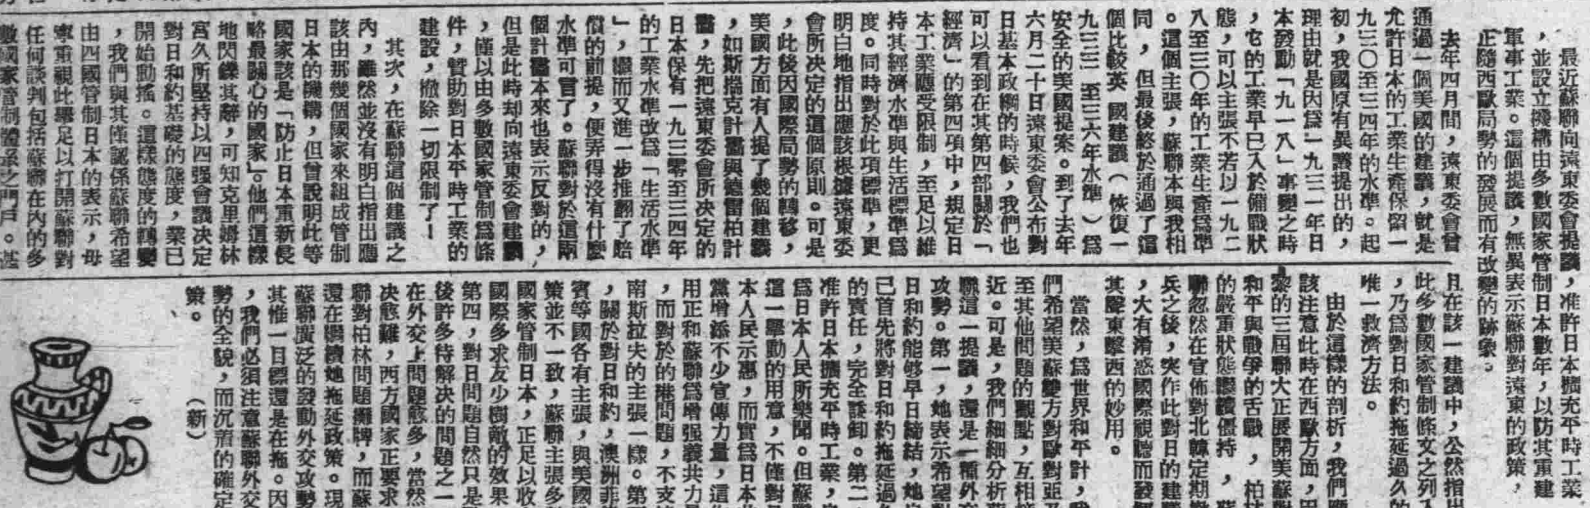 最近蘇聯向遠東委員會提議，准許日本擴充平時工業
，並設立機構由多數國家管制日本數年，以防其重建
軍事工業。這個提議，無異表示蘇聯對遠東的政策，
正隨西歐局勢的發展而有改變的跡象。
去年四月間，遠東委員會曾
通過一個美國的建議，就是
允許日本的工業生產保留一
九三〇至三四年的水準。起
初，我國原有異議提出的，
理由就是因爲一九三一年日
本發動「九一八」事變之時
，它的工業早已入於備戰狀
態，可以主張不若以一九二
八至三〇年的工業生產爲準
。這個主張，蘇聯本與我相
同，但最後終於通過了這
個比較英國建議（恢復一
九三三至三六年水準）爲
安全的美國提案。到了去年
六月二十日遠東委員會公布對
日基本政綱的時候，我們也
可以看到在其第四部關於「
經濟」的第四項中，規定日
本工業應受限制，至足以維
持其經濟水準與生活標準爲
度。同時對於此項標準，更
明白地指出應該根據遠東委
會所决定的這個原則。可是
，此後因國際局勢的轉移，
美國方面有人提了幾個建議
，如斯揣克計畫與德雷柏計
畫，先把遠東委員會所决定的
日本保有一九三零至三四年
的工業水準改爲「生活水準
」，繼而又進一步推翻了賠
償的前提，便弄得沒有什麼
水準可言了。蘇聯對於這兩
個計畫本來也表示反對的，
但是此時却向遠東委會建議
，僅以由多數國家管制爲條
件，贊助對日本平時工業的
建設，撤除一切限制了！
其次，在蘇聯這個建議之
內，雖然並沒有明白指出應
該由那幾個國家來組成管制
日本的機構，但曾說明此等
國家該是「防止日本重新侵
略最關心的國家」。他們這樣
地閃鑠其辭，可知克里姆林
宮久所堅持以四强會議决定
對日和約基礎的態度，業已
開始動搖。這樣態度的轉變
，我們與其僅認係蘇聯希望
由四國管制日本的表示，毋
寧重視此舉足以打開蘇聯對
任何談判包括蘇聯在內的多
數國家管制體系之門戶。甚
且在該一建議中，公然指出
此多數國家管制條文之列入
，乃爲對日和約拖延過久的
唯一救濟方法。
由於這樣的剖析，我們應
該注意此時在西歐方面，
黎的三屆聯大正展開美蘇對
和平與戰爭的舌戰，柏林
的嚴重狀態繼續僵持，蘇
聯忽然在宣佈對北韓定期撤
兵之後，突作此對日的建議
，大有淆惑國際視聽而發揮
其聲東擊西的妙用。
當然，爲世界和平計，我
們希望美蘇雙方對歐對亞乃
至其他問題的觀點，互相接
近。可是，我們細細分析蘇
聯這一提議，還是一種外交
攻勢。第一，她表示希望對
日和約能够早日締結，她
已首先將對日和約拖延過久
的責任，完全諉卸。第二，
准許日本擴充平時工業，
爲日本人民所樂聞。但蘇聯
這一舉動的用意，不僅對日
本人民示惠，而實爲日本共
黨增添不少宣傳力量，這
用正和蘇聯爲增强義共力量
，而對於的港問題，不支持
南斯拉夫的主張一樣。第三
，關於對日和約，澳洲菲律
賓等國各有主張，與美國政
策並不一致，蘇聯主張多數
國家管制日本，正足以收
國際多求友少樹敵的效果。
第四，對日問題自然只是戰
後許多待解决的問題之一，
在外交上問題愈多，當然
决愈難，西方國家正要求蘇
聯對柏林問題攤牌，而蘇聯
還在繼續她拖延政策。現
蘇聯廣泛的發動外交攻勢，
其惟一目標還是在拖。因此
，我們必須注意蘇聯外交攻
勢的全貌，而沉着的確定
策。（新）